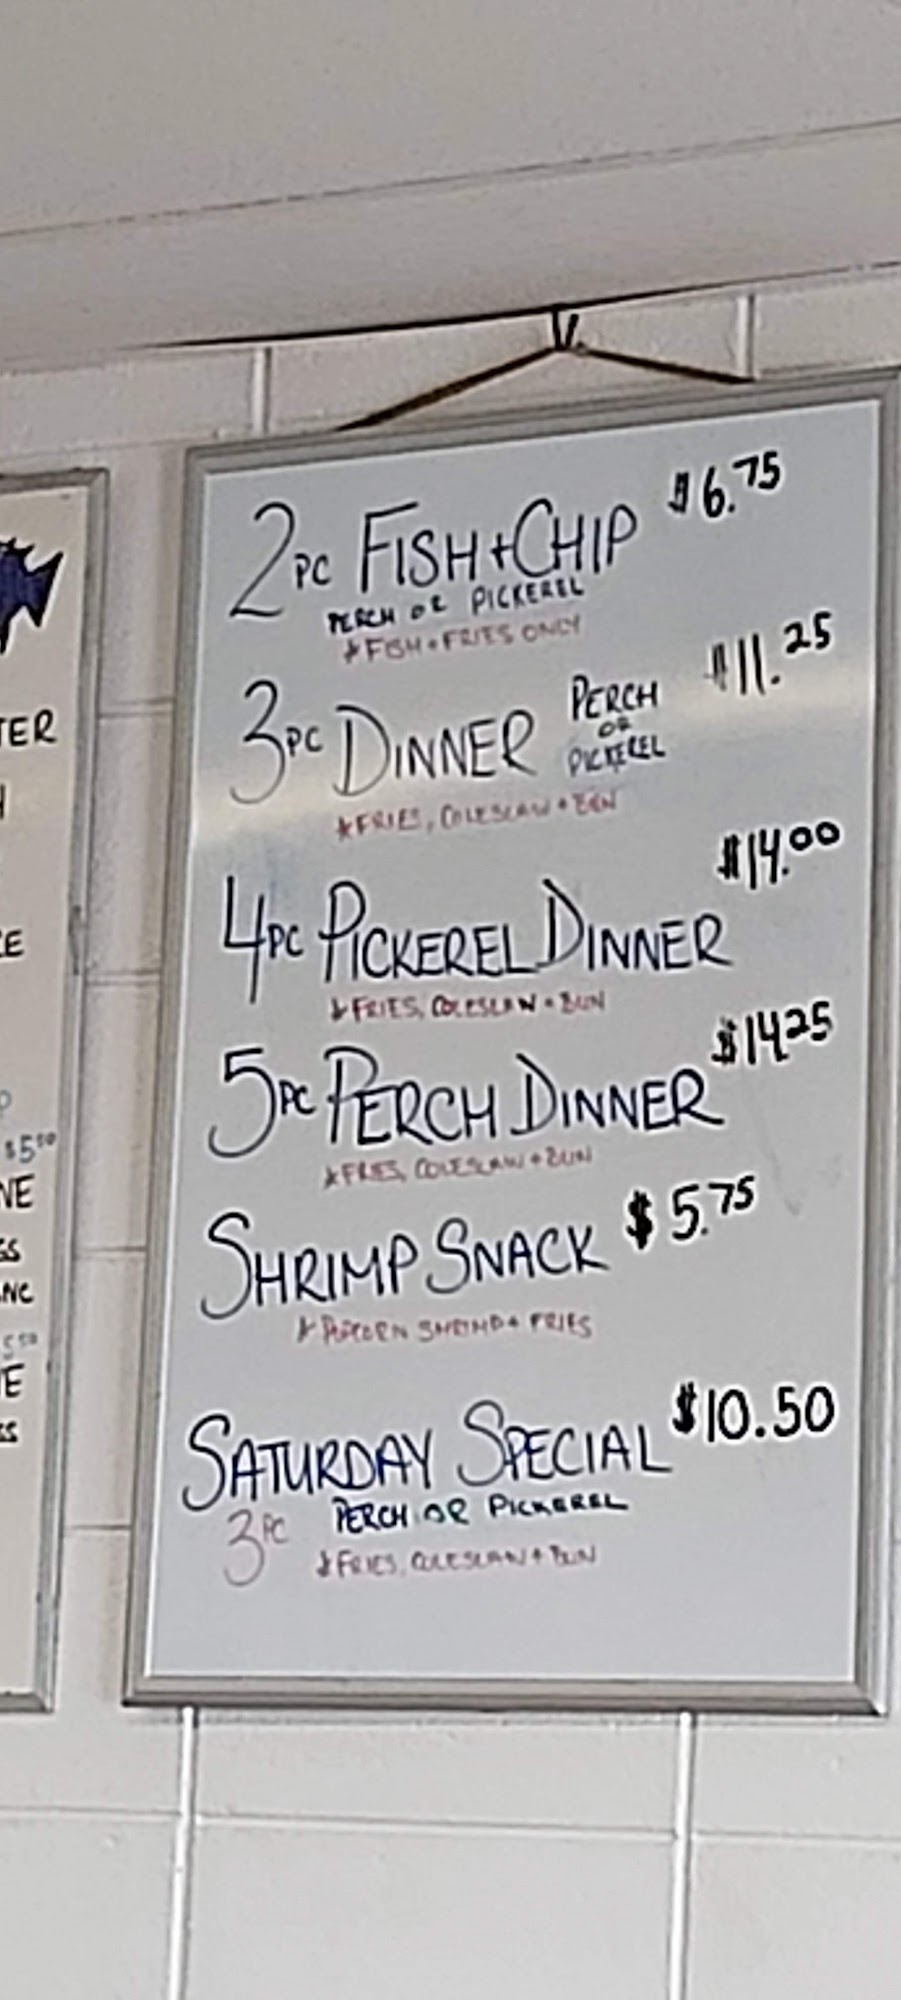 TER
E
P
$550
NE
SS
INC
550
E
SS
2PC FISH + CHIP $6.75
PERCH OR PICKEREL
*FISH + FRIES ONLY
3PC DINNER PERCH OR PICKEREL $11.25
*FRIES, COLESLAW + BUN
$14.00
4PC PICKEREL DINNER
*FRIES, COLESLAW + BUN
$14.25
5PC PERCH DINNER
*FRIES, COLESLAW + BUN
SHRIMP SNACK $5.75
*POPCORN SHRIMP + FRIES
SATURDAY SPECIAL $10.50
3PC PERCH OR PICKEREL
*FRIES, COLESLAW + BUN